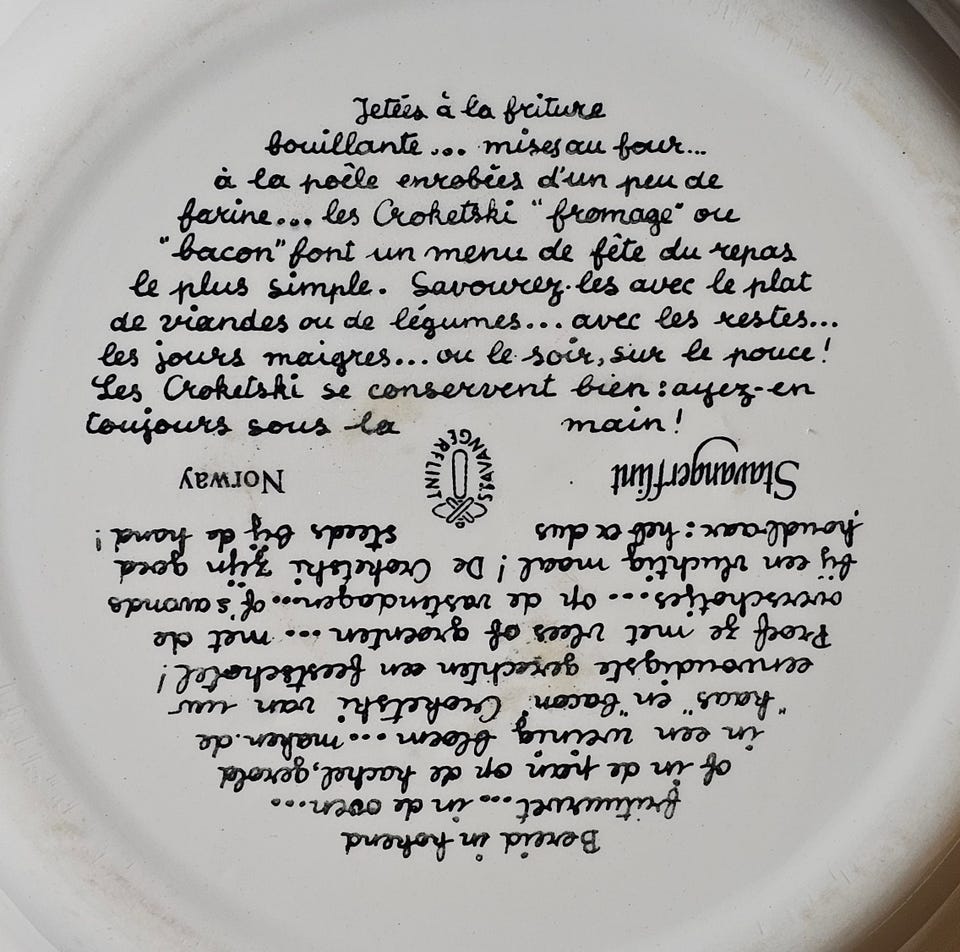 Jetées à la friture
bouillante... mises au four...
à la poêle enrobées d'un peu de
farine... les Croketski "fromage" ou
"bacon" font un menu de fête du repas
le plus simple. Savourez-les avec le plat
de viandes ou de légumes... avec les restes...
les jours maigres... ou le soir, sur le pouce!
Les Croketski se conservent bien: ayez-en
toujours sous la main!
STAVANGERFLINT
Stavangerflint Norway
Bereid in kokend
frituurvet... in de oven...
of in de pan op de kachel, gerold
in een weinig bloem... maken de
"kaas" en "bacon" Croketski van uw
eenvoudigste gerechten een feestschotel!
Proef ze met vlees of groenten... met de
overschotjes... op de vastendagen... of 's avonds
bij een vluchtig maal! De Croketski zijn goed
houdbaar: heb ze dus steeds bij de hand!